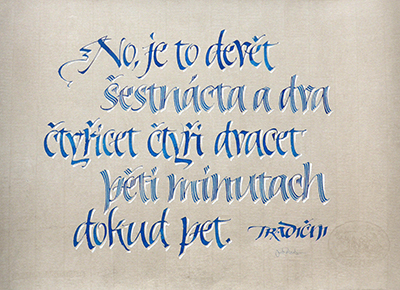 No, je to devět
šestnácta a dva
čtyřicet čtyři dvacet
pěti minutach
dokud pet. TRADIČNI